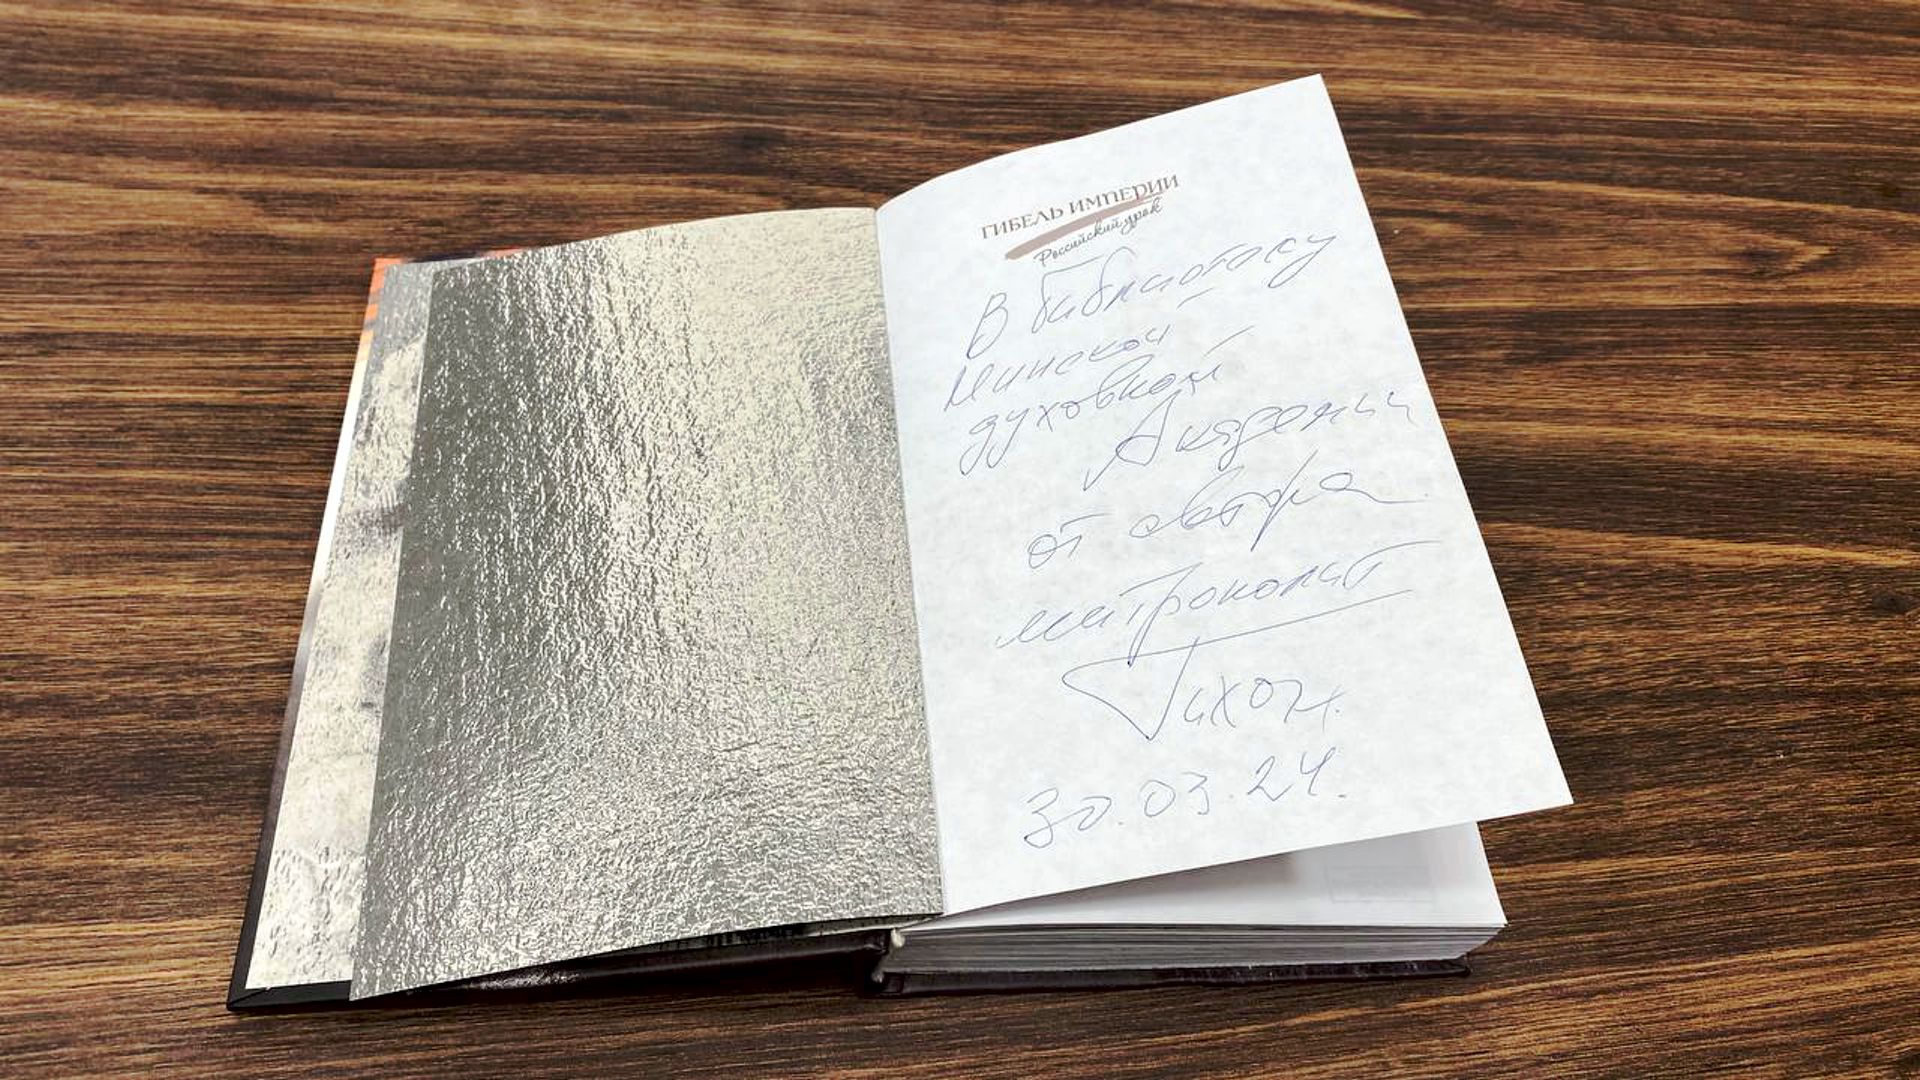 ГИБЕЛЬ ИМПЕРИИ
Российский урок
В библиотеку
Минской
духовной
Академии
от автора
митрополит
Тихон.
30.03.24.